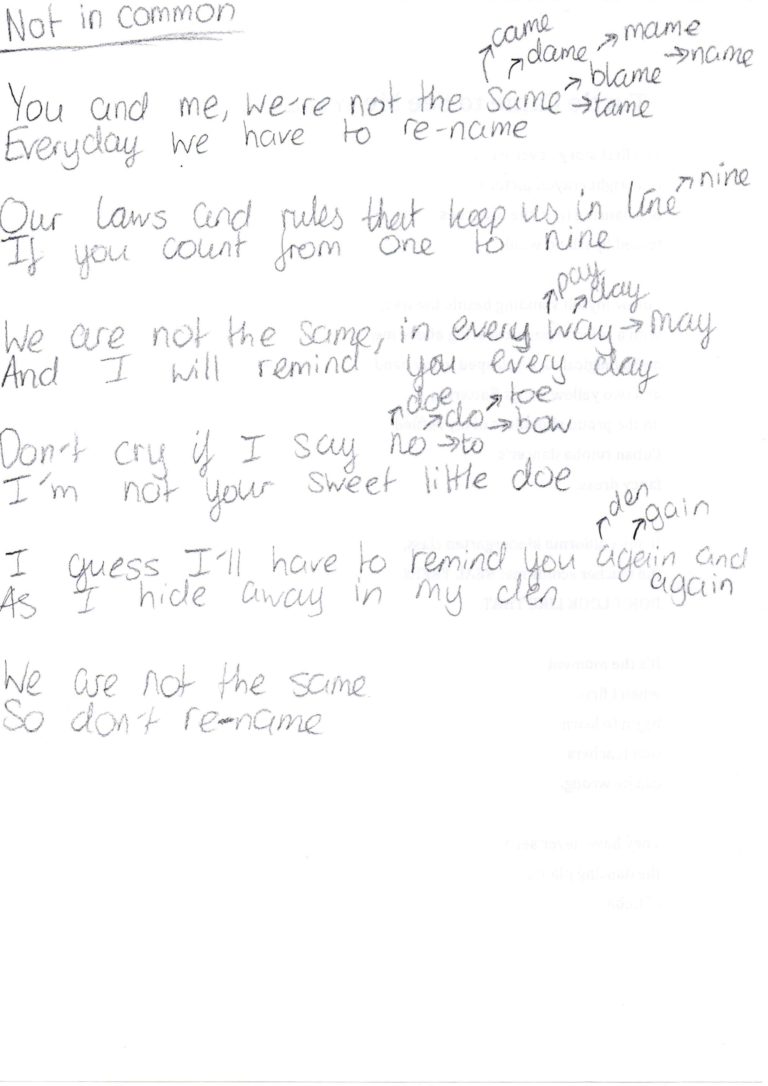 Not in common
came
dame → mame
blame → name
You and me, we-re not the same → tame
Everyday we have to re-name
Our laws and rules that keep us in line → nine
If you count from one to nine
pay
day
We are not the same, in every way → may
And I will remind you every day
doe → toe
do → bow
Don't cry if I say no → to
I'm not your sweet little doe
den
gain
I guess I'll have to remind you again and
again
As I hide away in my den
We are not the same
So don't re-name